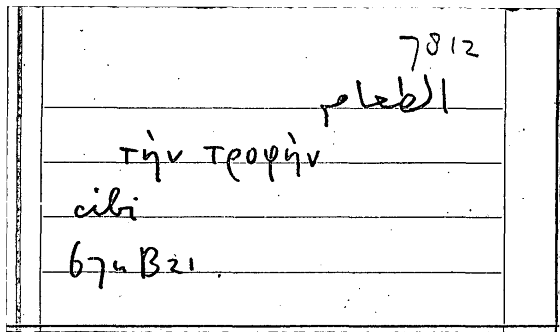 7812
الطعام
τὴν τροφὴν
cibi
67u B21.